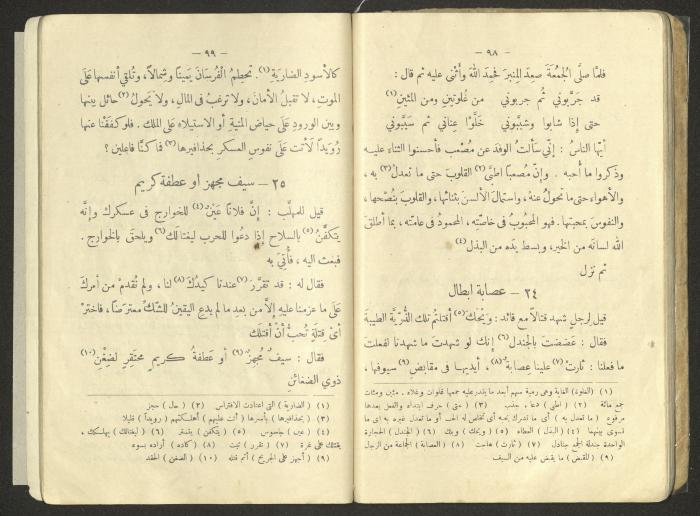 — ٩٨ —
فلمّا صلّى الجُمُعَةَ صعِدَ المِنبرَ فحمِدَ اللهَ وأثنى عليه ثم قال :
قد جَرَّبوني ثُم جربوني من غُلوتين ومن المئينِ (١)
حتى إذا شابوا وشيَّبوني خَلَّوْا عِناني ثم سَيَّبوني
أيّها الناسُ : إنّي سألتُ الوفدَ عن مُصْعب فأحسنوا الثناءَ عليه
وذكروا ما أُحبه . وإنّ مُصعبًا اطبَّى (٢) القلوبَ حتى ما تعدلُ (٣) به ،
والأهواءَ حتى ما تحولُ عنهُ ، واستمالَ الألسنَ بثنائها ، والقلوبَ بنُصْحها ،
والنفوسَ بمحبتها . فهو المحبوبُ في خاصّته ، المحمودُ في عامّته ، بما أطلق
اللهُ لسانَه من الخير ، وبسط يدَه من البذل (٤)
ثم نزل
٢٤ – عصابة ابطال
قيل لرجل شهد قتالاً مع قائد : وَيْحَكَ (٥) أقتلتُم تلك الذُّرِّيَّة الطيبة
فقال : عَضِضتَ بالجَندل (٦) إنك لو شهدتَ ما شهدنا لفعلتَ
ما فعلنا : ثارتْ (٧) علينا عِصابةٌ (٨) ، أيديها في مقابضِ (٩) سيوفها ،
(١) (الغلوة) الغاية وهي رمية سهم أبعد ما يقدر عليه جمعها غلوات وغلاء . مئين ومئات
جمع مائة (٢) (اطبى) دعا ، جذب (٣) (حتى) حرف ابتداء والفعل بعدها
مرفوع (ما تعدل به)
تسوي بينهما (٤) البذل) العطاء (٥) (ويحك) ويلك (٦) (الجندل) الحجارة
الواحدة جندلة الجمع جنادل (٧) (ثارت) هاجت (٨) (العصابة) الجماعة من الرجال
(٩) (المقبض) ما يقبض عليه من السيف
— ٩٩ —
كالأسودِ الضاريَةِ (١) . تحطِمُ الفُرسَانَ يمينًا وشِمالاً ، وتُلقي أنفسَها علَى
الموتِ ، لا تقبلُ الأمانَ ، ولا ترغبُ في المالِ ، ولا يَحولُ (٢) حائل بينها
وبين الورودِ علَى حِياضِ المنيةِ أو الاستيلاءِ علَى الملك . فلو كفَفْنا عنها
رُوَيْدًا لأتت علَى نفوسِ العسكرِ بحذافيرها (٣) فما كنّا فاعلين ؟
٢٥ – سيف مجهز او عطفة كريم
قيل للمهلَّب : إنّ فلانًا عَيْنٌ (٤) للخوارج في عسكرك وإنَّه
يتكفَّنُ (٥) بالسلاح إذا دعُوا للحرب ليغتالَك (٦) ويلحقَ بالخوارج .
فبعث اليه ، فأُتِيَ به
فقال له : قد تقرَّرَ (٧) عندنا كيدُكَ (٨) لنا ، ولم نُقدم من أمرِكَ
علَى ما عزمنا عليهِ إلاّ من بعدِ ما لم يدعِ اليقينُ للشَّكِّ معترَضًا ، فاخترْ
أيَّ قتلَةٍ تُحبُّ أنْ أقتلَك
فقال : سيفٌ مُجهِزٌ (٩) أو عَطفةُ كريمٍ محتقِرٍ لضِغنِ (١٠)
ذوي الضغائنِ
(١) (الضارية) التي اعتادت الافتراس (٢) (حال) حجز
(٣) (بحذافيرها) بأسرها (أتت عليهم) أهلكتهم (رويداً) قليلا
(٤) (عين) جاسوس (٥) (يتكفن) يتستر (٦) (ليغتالك) يهلكك ،
يقتلك على غرة (٧) (تقرر) ثبت (٨) (كاده) أراده بسوء
(٩) (أجهز على الجريح) أتم قتله (١٠) (الضغن) الحقد